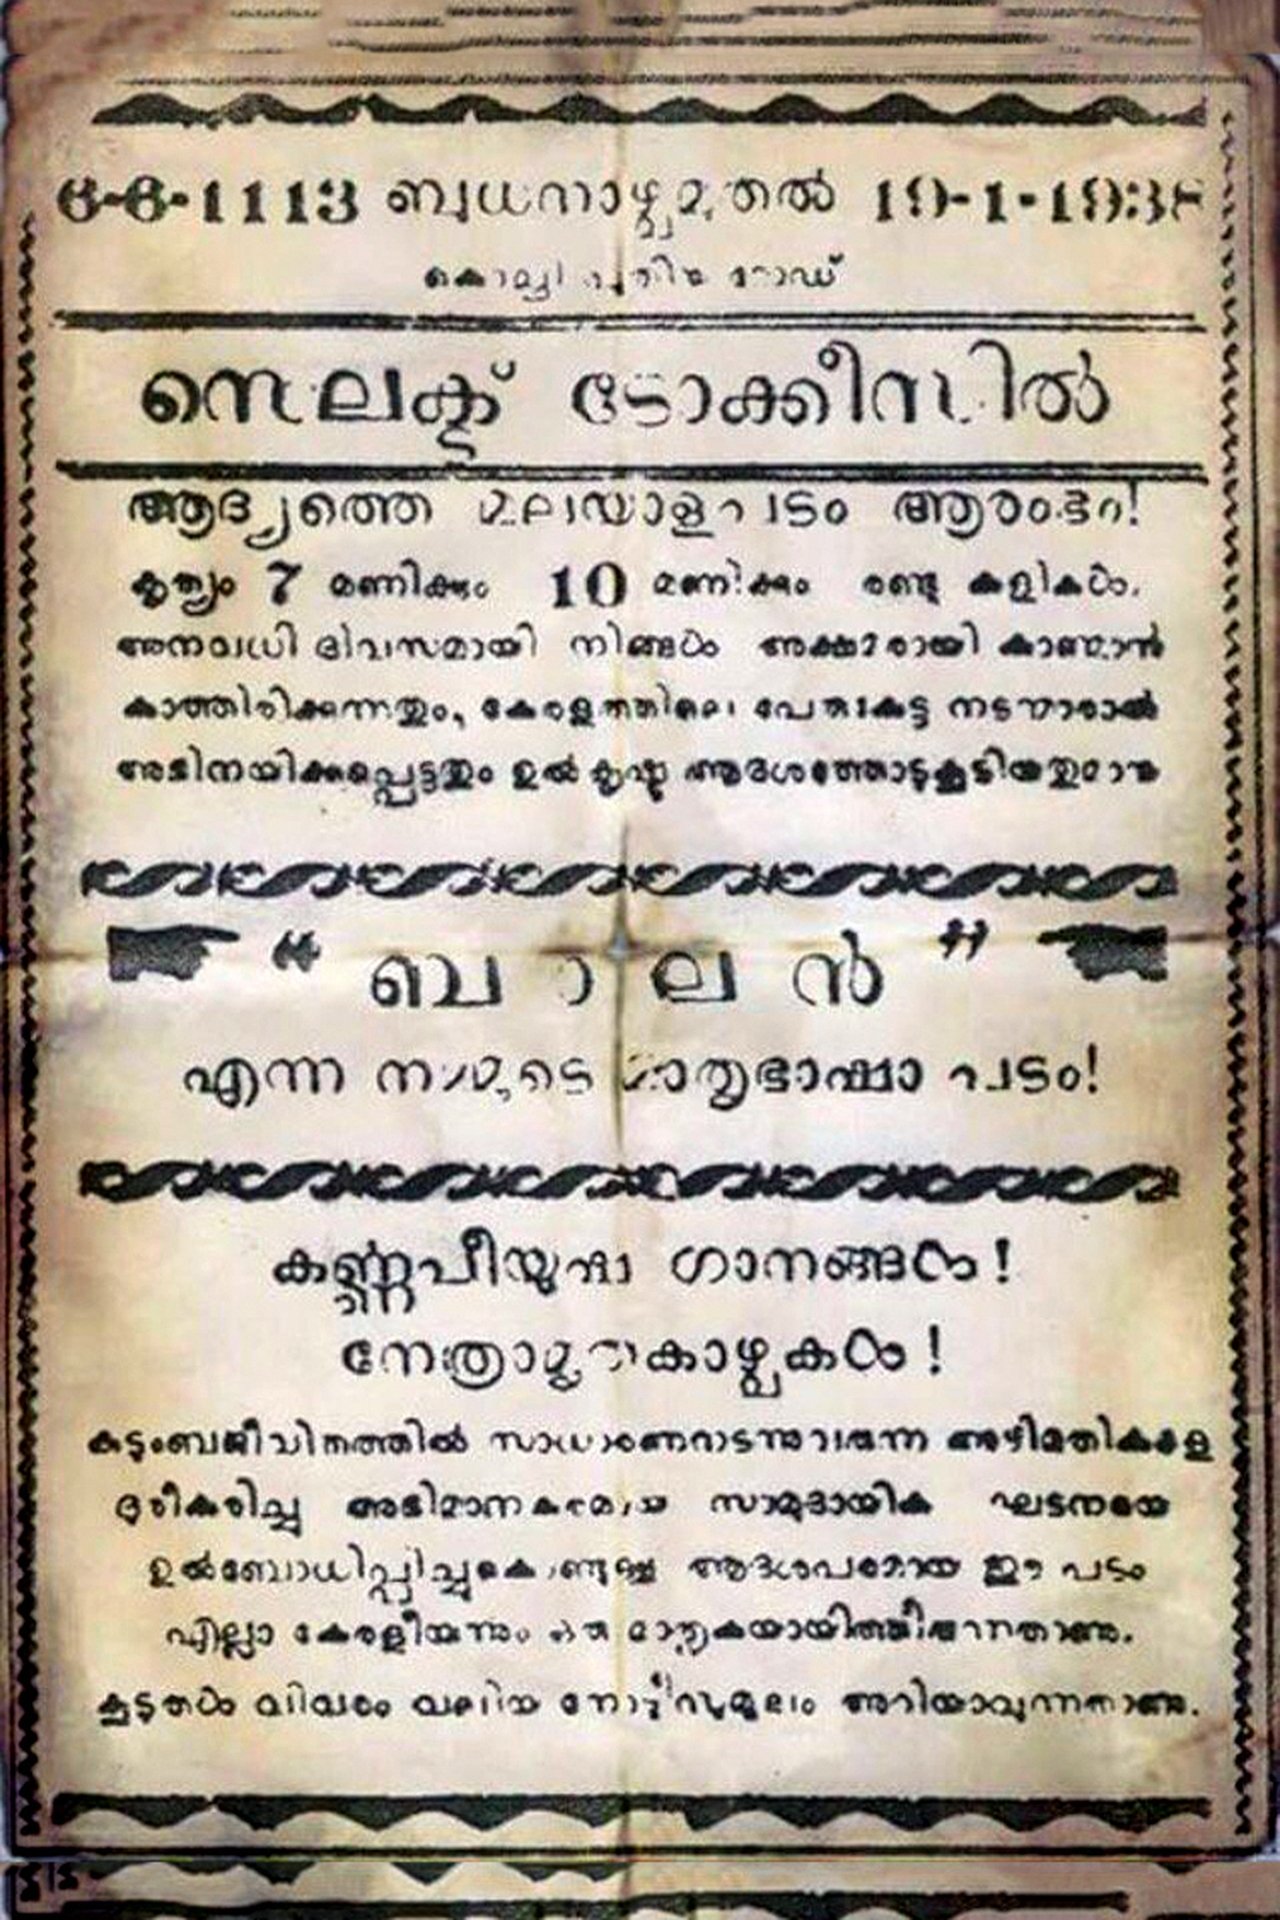 6-6-1113 ബുധനാഴ്ചമുതൽ 19-1-1938
കൊച്ചി
സെലക്ട് ടോക്കീസിൽ
ആദ്യത്തെ മലയാളപടം ആരംഭം!
കൃത്യം 7 മണിക്കും 10 മണിക്കും രണ്ടു കളികൾ.
അനവധി ദിവസമായി നിങ്ങൾ അക്ഷമരായി കാണ്മാൻ
കാത്തിരിക്കുന്നതും, കേരളത്തിലെ പേരുകേട്ട നടന്മാരാൽ
അഭിനയിക്കപ്പെട്ടതും ഉൽകൃഷ്ട ആദർശത്തോടുകൂടിയതുമായ
“ബാലൻ”
എന്ന നമ്മുടെ മാതൃഭാഷാ പടം!
കർണ്ണപീയുഷ ഗാനങ്ങൾ!
നേത്രാമൃതകാഴ്ചകൾ!
കുടുംബജീവിതത്തിൽ സാധാരണനടന്നുവരുന്ന അഴിമതികളെ
ദൂരീകരിച്ചു അഭിമാനകരമായ സാമുദായിക ഘടനയെ
ഉൽബോധിപ്പിച്ചുകൊണ്ടുള്ള ആദർശപരമായ ഈ പടം
എല്ലാ കേരളീയനും ഒരു മാതൃകയായിത്തീരുന്നതാണു.
കൂടുതൽ വിവരം വലിയ നോട്ടീസുമൂലം അറിയാവുന്നതാണു.